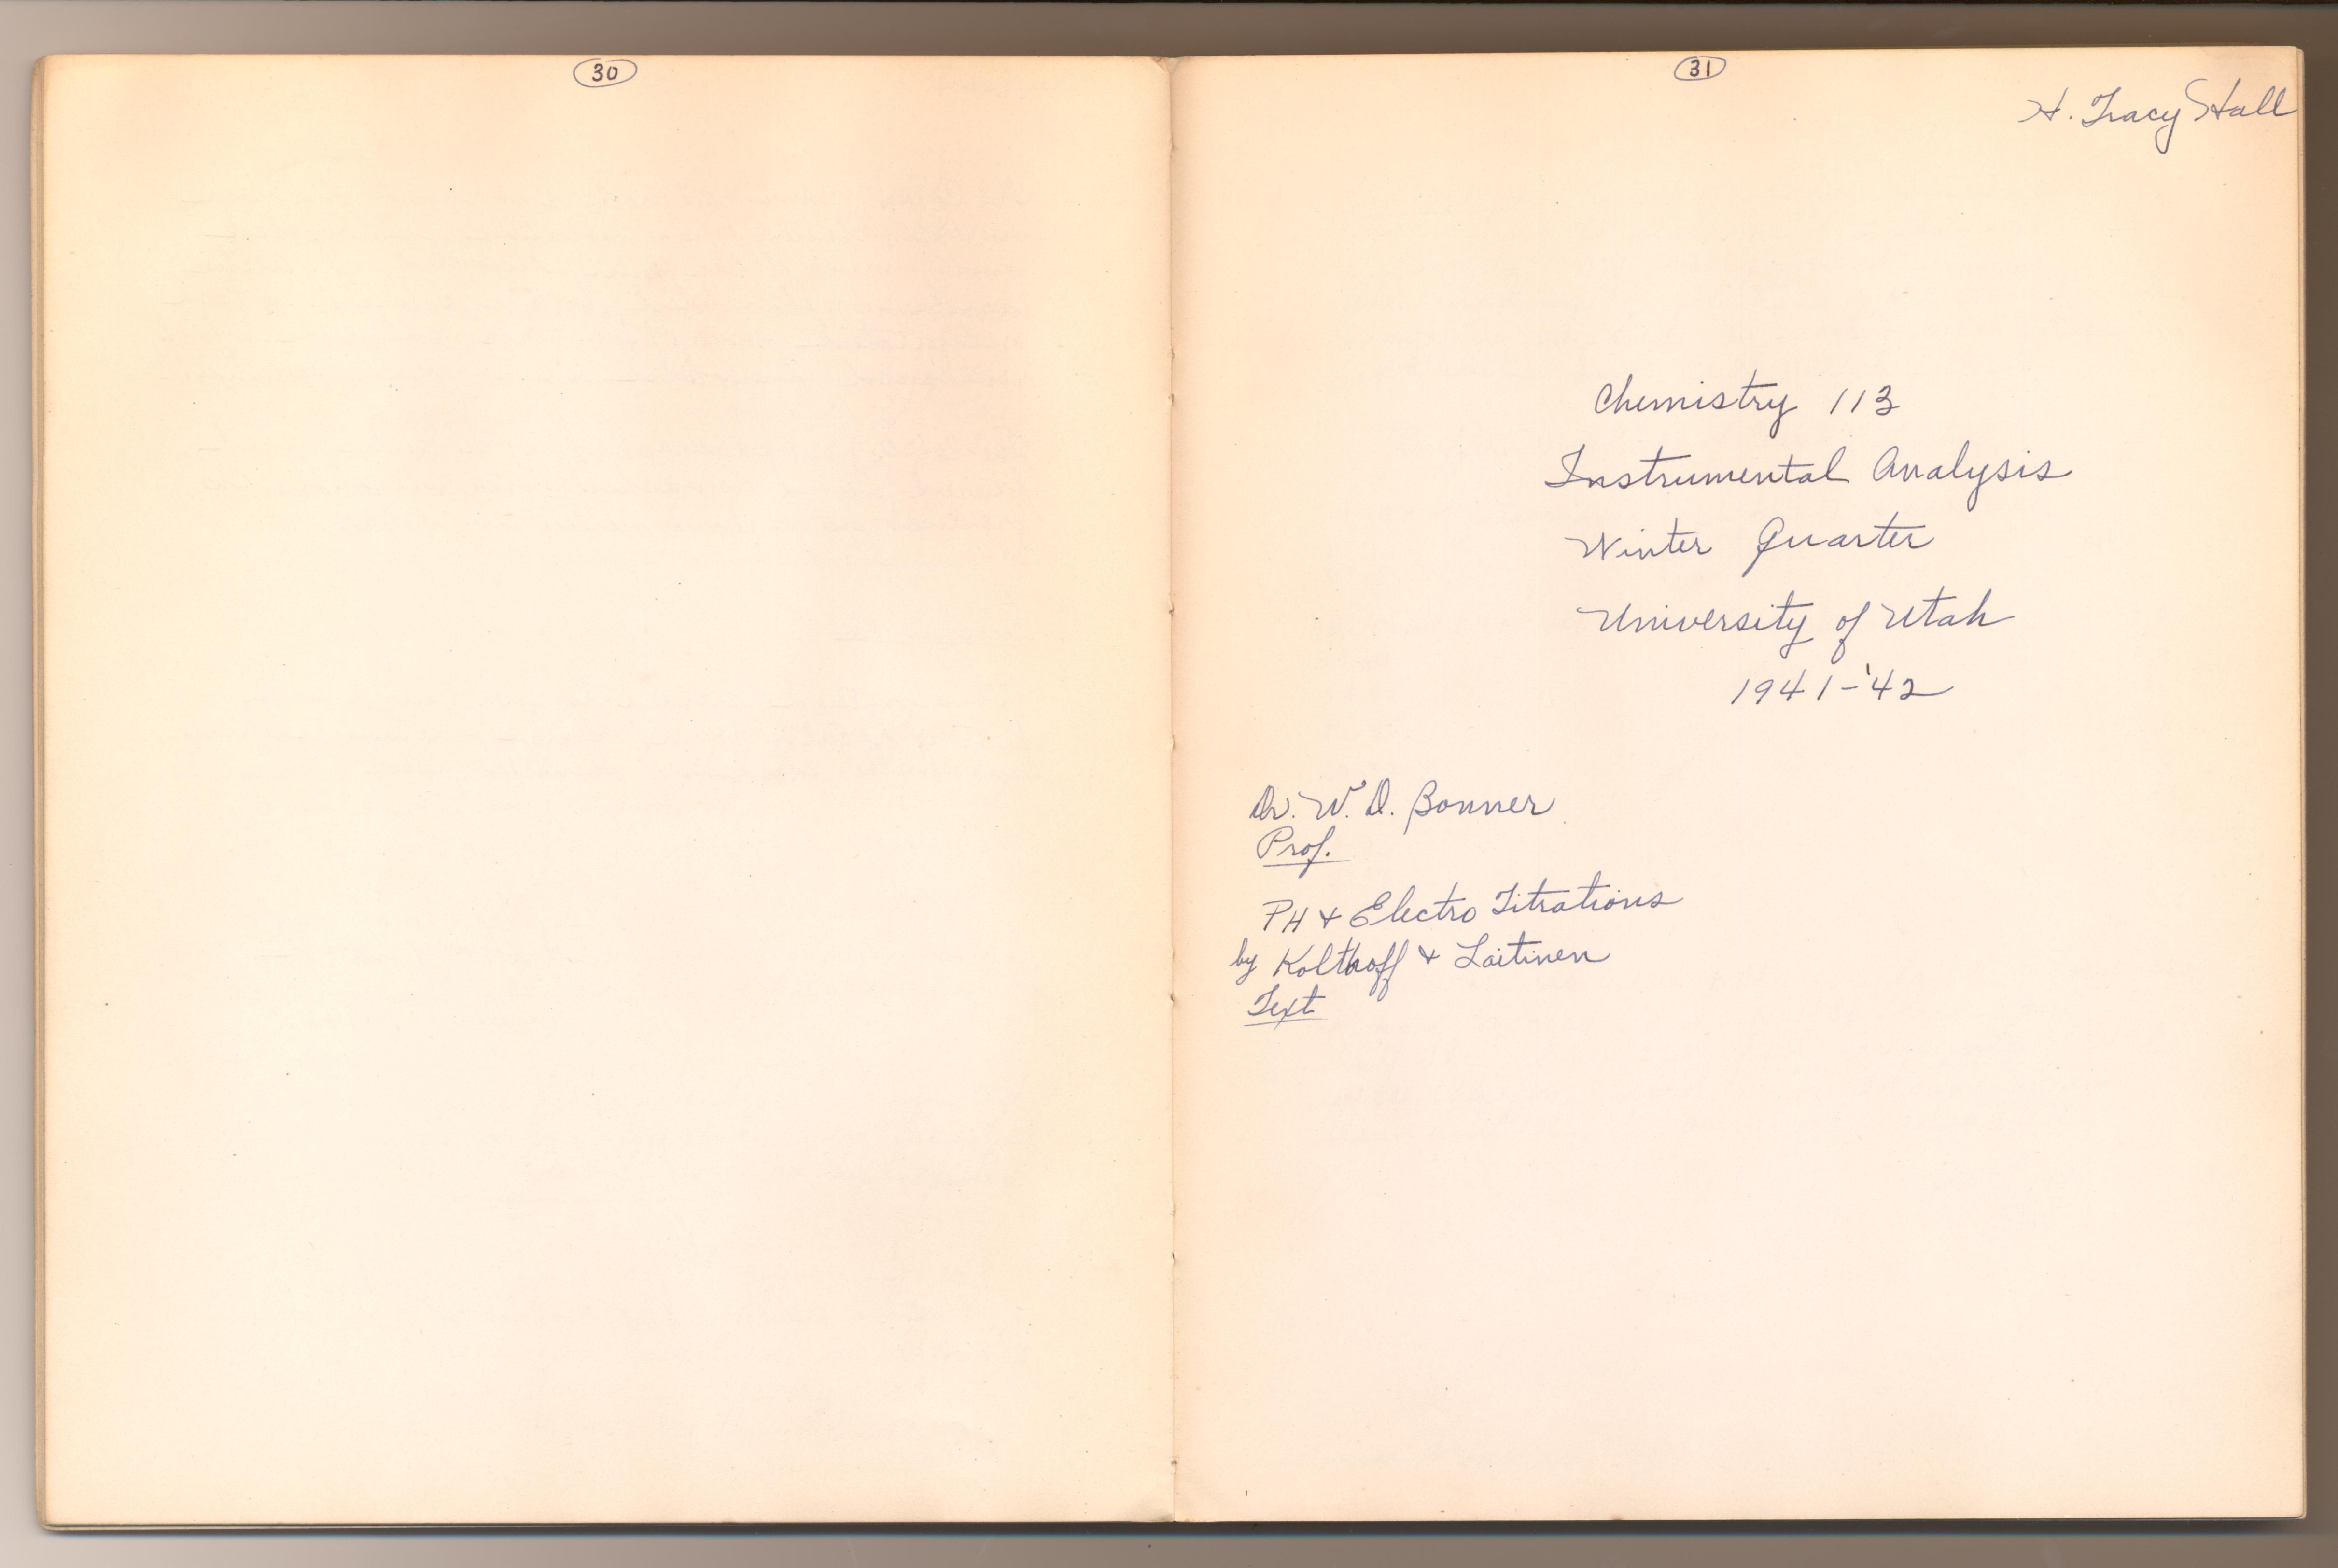 30
31
H. Tracy Hall
Chemistry 113
Instrumental Analysis
Winter Quarter
University of Utah
1941-'42
Dr. W. D. Bonner
Prof.
PH & Electro Titrations
by Kolthoff & Laitinen
Text